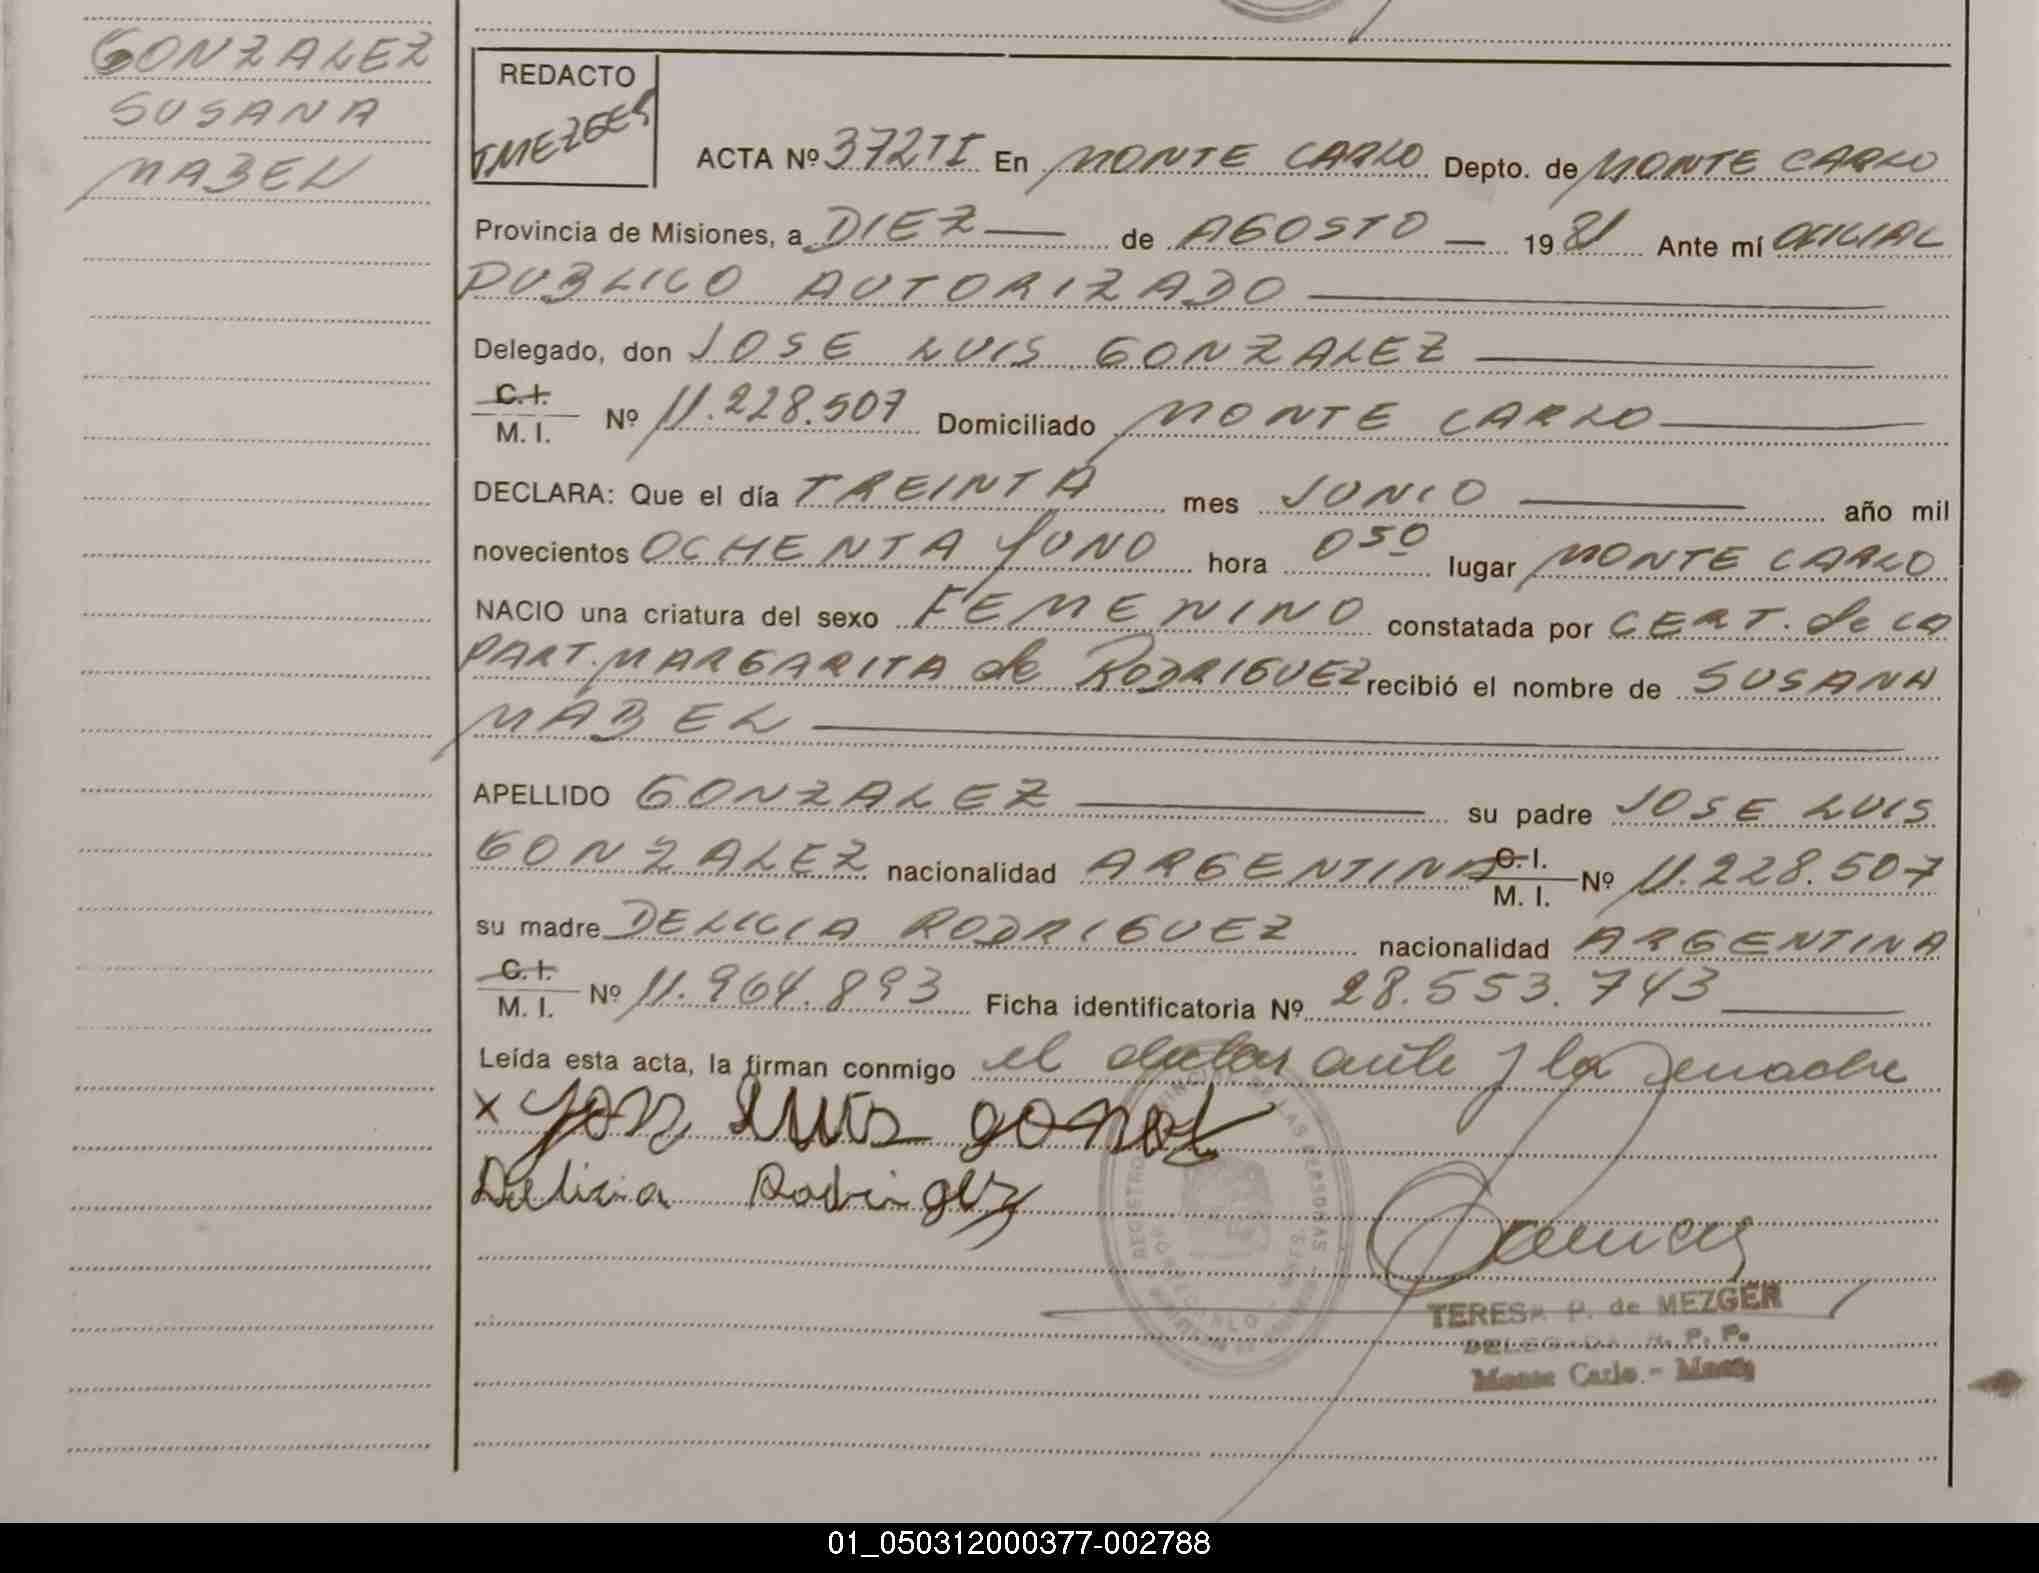 GONZALEZ
SUSANA
MABEL
REDACTO
TMEZGER
ACTA Nº 372TI En MONTE CARLO Depto. de MONTE CARLO
Provincia de Misiones, a DIEZ de AGOSTO 1981 Ante mí OFICIAL
PUBLICO AUTORIZADO
Delegado, don JOSE LUIS GONZALEZ
C.I.
M. I. Nº 11.228.507 Domiciliado MONTE CARLO
DECLARA: Que el día TREINTA mes JUNIO año mil
novecientos OCHENTA YUNO hora 050 lugar MONTE CARLO
NACIO una criatura del sexo FEMENINO constatada por CERT. de la
PART. MARGARITA de RODRIGUEZ recibió el nombre de SUSANA
MABEL
APELLIDO GONZALEZ su padre JOSE LUIS
GONZALEZ nacionalidad ARGENTINA C.I. M. I. Nº 11.228.507
su madre DELICIA RODRIGUEZ nacionalidad ARGENTINA
C.I.
M. I. Nº 11.964.893 Ficha identificatoria Nº 28.553.743
Leída esta acta, la firman conmigo el y la
x Luis
Delicia
TERESA P. de MEZGER
DELEGADA R. P. P.
Monte Carlo - Mnes
01_050312000377-002788